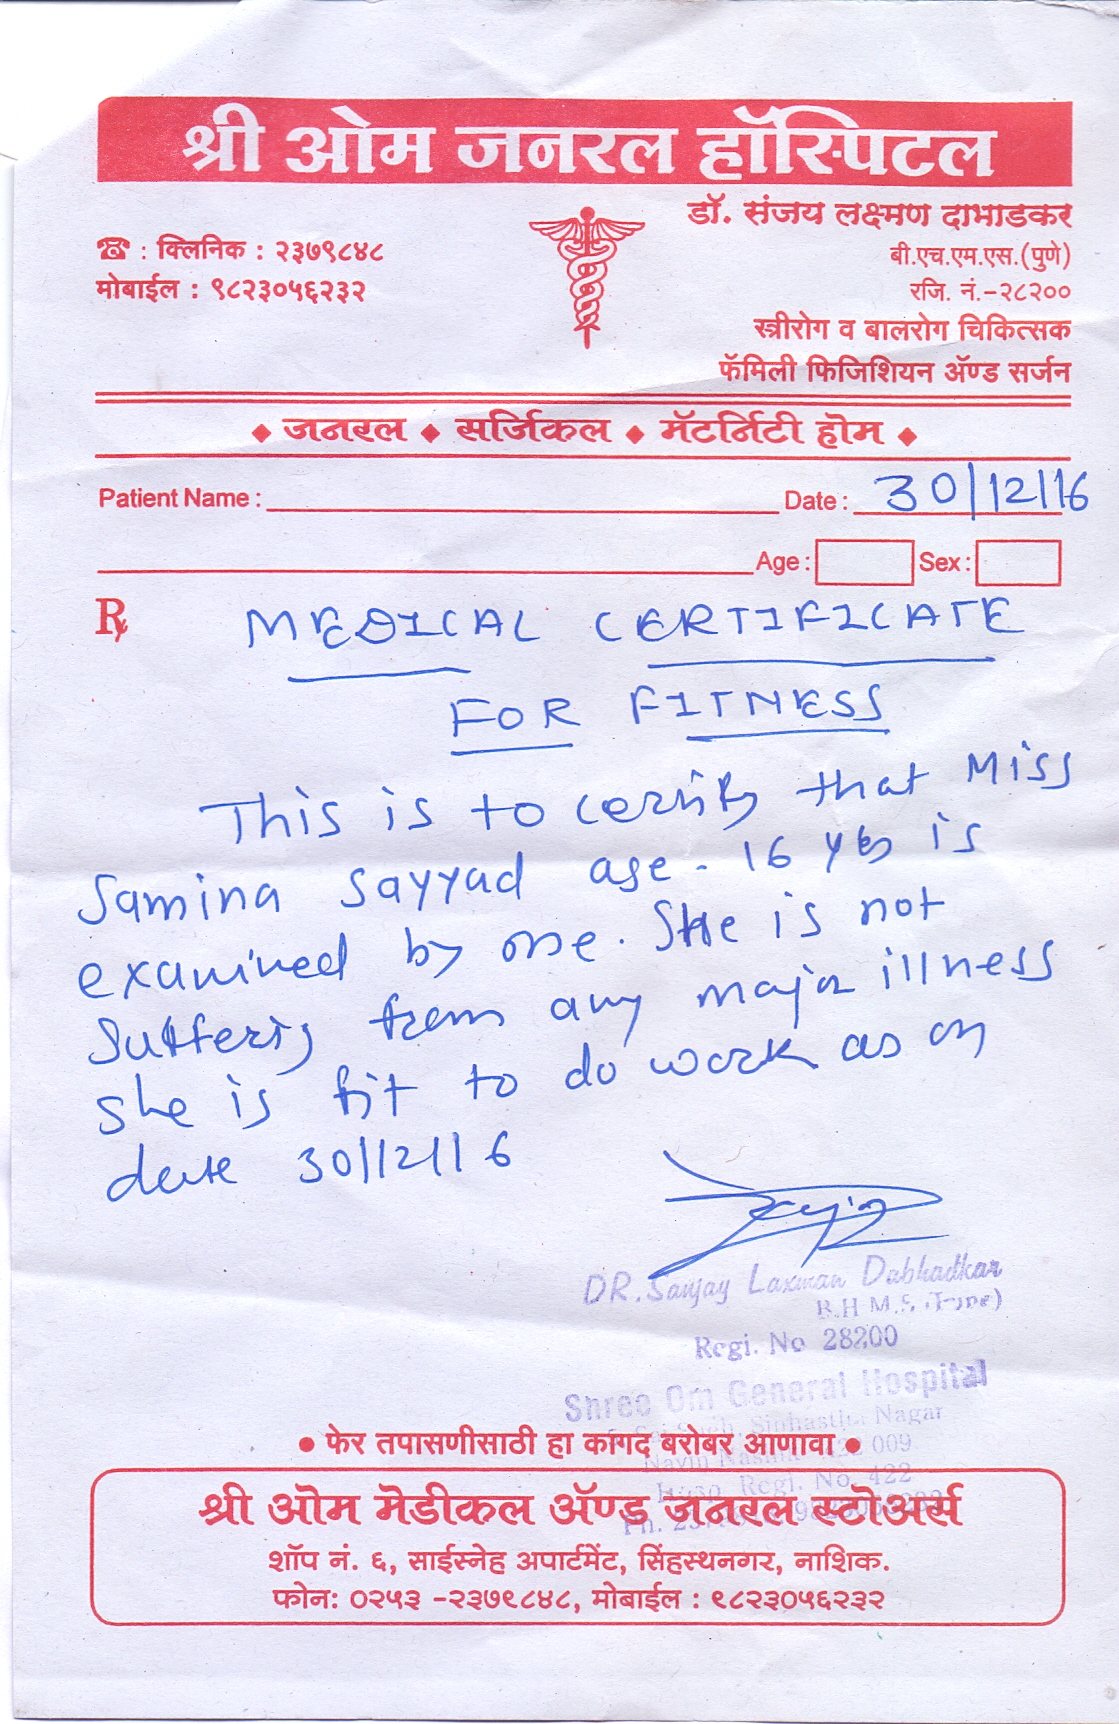 श्री ओम जनरल हॉस्पिटल
डॉ. संजय लक्ष्मण दाभाडकर
☎ : क्लिनिक : २३७९८४८
बी.एच.एम.एस.(पुणे)
मोबाईल : ९८२३०५६२३२
रजि. नं.-२८२००
स्त्रीरोग व बालरोग चिकित्सक
फॅमिली फिजिशियन ॲण्ड सर्जन
♦ जनरल ♦ सर्जिकल ♦ मॅटर्निटी होम ♦
Patient Name : Date : 30/12/16
Age : Sex :
℞ MEDICAL CERTIFICATE
FOR FITNESS
This is to certify that Miss
Samina Sayyad age - 16 yrs is
examined by me. She is not
suffering from any major illness
she is fit to do work as on
date 30/12/16
DR. Sanjay Laxman Dabhadkar
B.H.M.S. (Pune)
Regi. No 28200
Shree Om General Hospital
Sinhastha Nagar
Navin Nashik 422 009
Hosp. Regi. No. 422
Ph.
● फेर तपासणीसाठी हा कागद बरोबर आणावा ●
श्री ओम मेडीकल ॲण्ड जनरल स्टोअर्स
शॉप नं. ६, साईस्नेह अपार्टमेंट, सिंहस्थनगर, नाशिक.
फोन: ०२५३ -२३७९८४८, मोबाईल : ९८२३०५६२३२